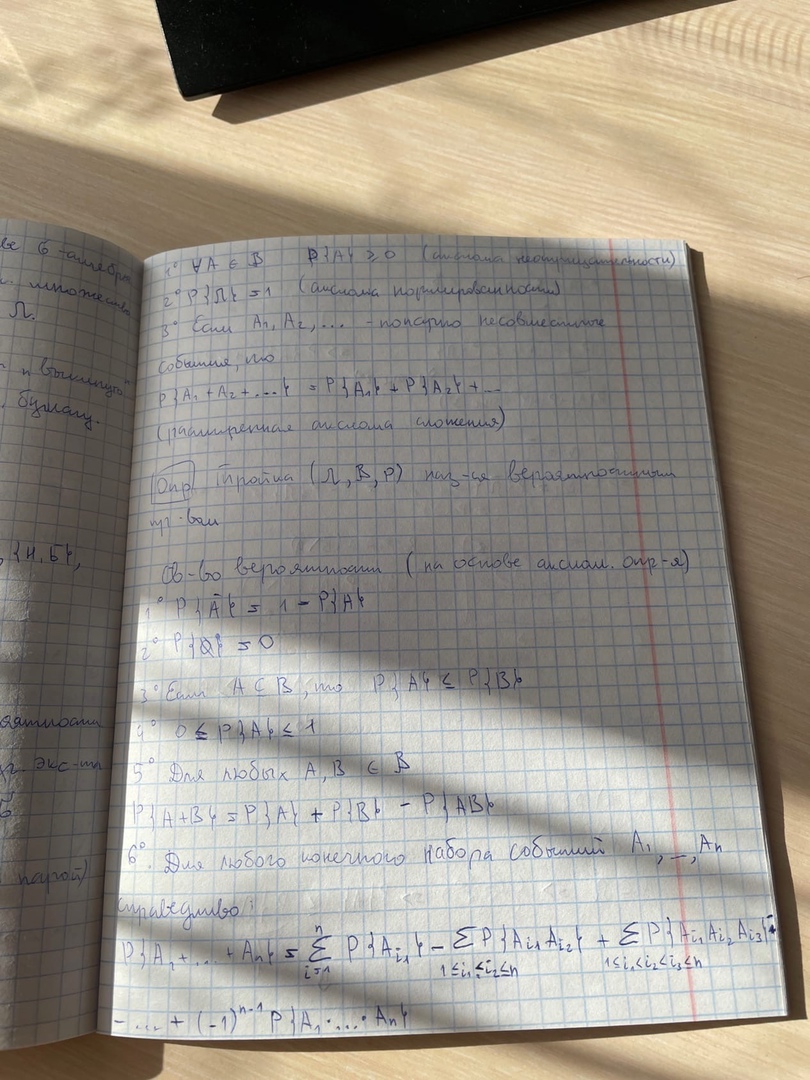 ве б-алгебры
множества
Ω.
п выкинуто"
бумагу.
, {Н, Б},
оятности
экс-та
парой)
1° ∀A ∈ B P{A} ≥ 0 (аксиома неотрицательности)
2° P{Ω} = 1 (аксиома нормированности)
3° Если A₁, A₂, ... - попарно несовместные
события, то
P{A₁ + A₂ + ...} = P{A₁} + P{A₂} + ...
(расширенная аксиома сложения)
Опр Тройка (Ω, B, P) наз-ся вероятностным
пр-вом
Св-во вероятности (на основе аксиом. опр-я)
1° P{Ā} = 1 - P{A}
2° P{∅} = 0
3° Если A ⊂ B, то P{A} ≤ P{B}
4° 0 ≤ P{A} ≤ 1
5° Для любых A, B ∈ B
P{A+B} = P{A} + P{B} - P{AB}
6°. Для любого конечного набора событий A₁, ..., Aₙ
справедливо:
P{A₁ + ... + Aₙ} = Σⁿᵢ₌₁ P{Aᵢ₁} - Σ P{Aᵢ₁ Aᵢ₂} + Σ P{Aᵢ₁ Aᵢ₂ Aᵢ₃} -
1≤i₁≤i₂≤n 1≤i₁<i₂<i₃≤n
- ... + (-1)ⁿ⁻¹ P{A₁ · ... · Aₙ}